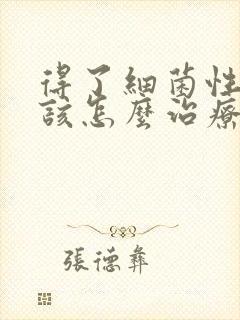 得了細菌性
該怎麼治療
張德彝